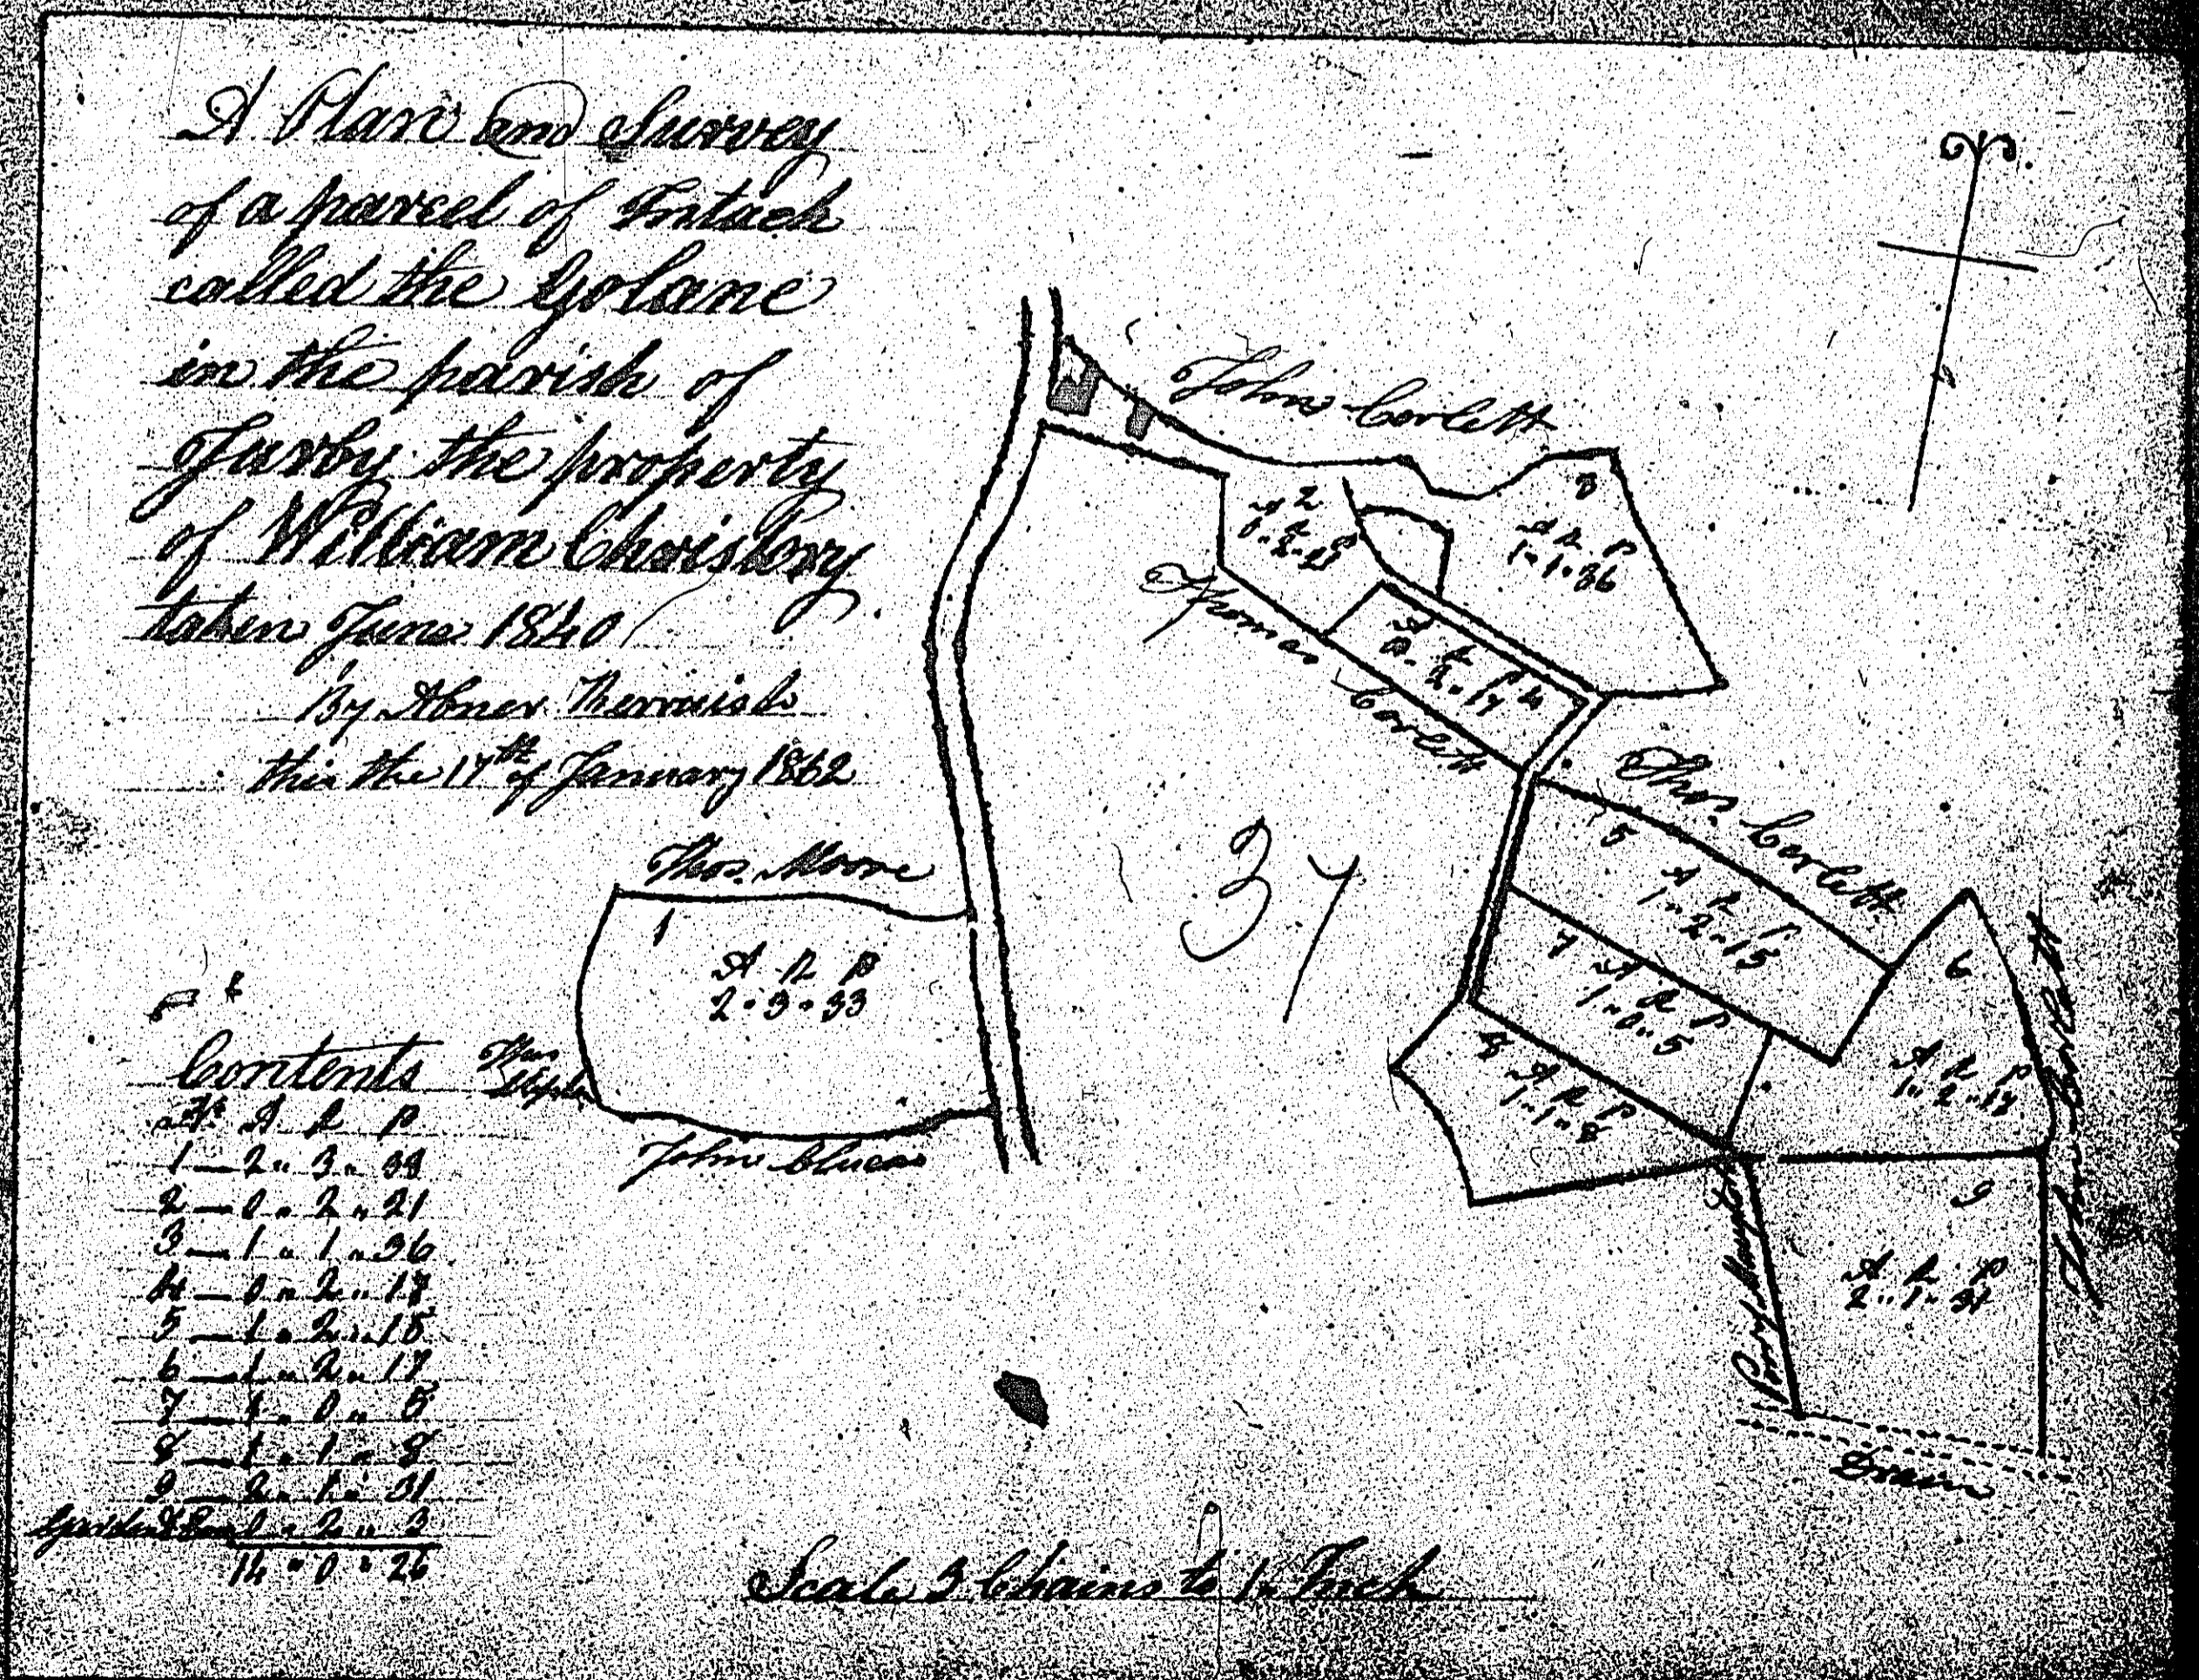 A Plan and Survey
of a parcel of Intack
called the Golane
in the parish of
Jurby the property
of William Christory
taken June 1840
By Abner Kerruish
this the 17th of January 1862
John Corlett
2
A R P
0 " 2 " 21
3
A R P
1 " 1 " 36
Thomas Corlett
4
A R P
0 " 2 " 17
Thos. Corlett
5
A R P
1 " 2 " 15
37
Thos. Moore
1
A R P
2 " 3 " 33
6
A R P
1 " 2 " 17
7
A R P
1 " 0 " 5
8
A R P
1 " 1 " 8
John Clucas
9
A R P
2 " 1 " 31
Drain
Contents
No. A R P
1 — 2 " 3 " 33
2 — 0 " 2 " 21
3 — 1 " 1 " 36
4 — 0 " 2 " 17
5 — 1 " 2 " 15
6 — 1 " 2 " 17
7 — 1 " 0 " 5
8 — 1 " 1 " 8
9 — 2 " 1 " 31
0 " 2 " 3
14 " 0 " 26
Scale 3 Chains to 1 Inch